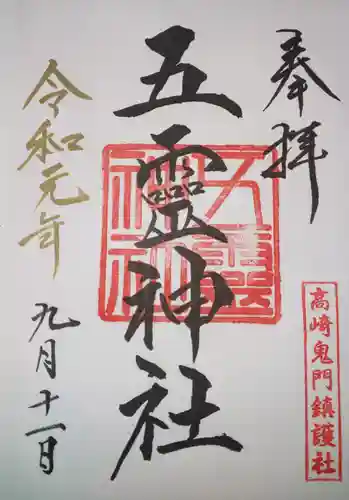 奉拝
五靈神社
令和元年
九月十一日
高崎鬼門鎮護社